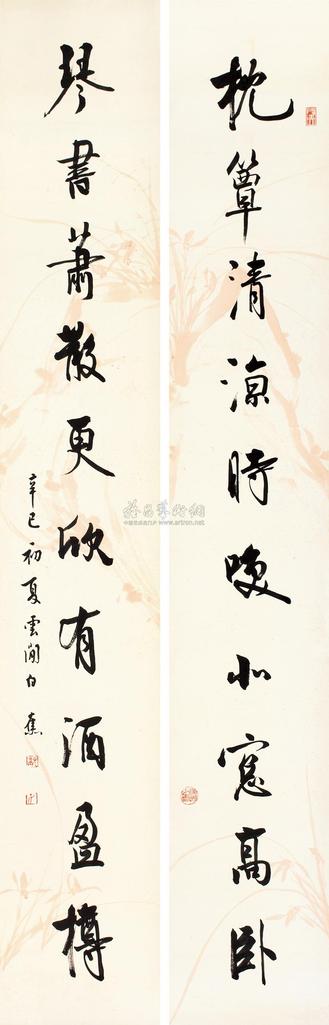 枕簟清涼時北窻高臥
琴書蕭散更欣有酒盈樽
辛巳初夏雲間白蕉
www.artron.net